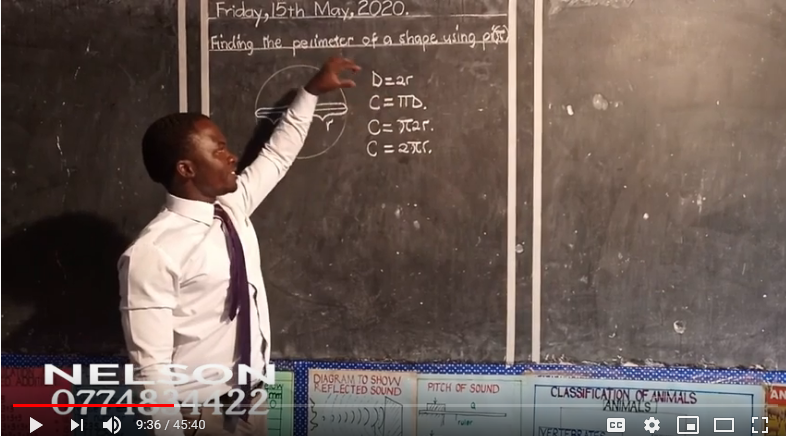 Friday, 15th May, 2020.
Finding the perimeter of a shape using pi(π)
D=2r
C=πD.
C=π2r.
C=2πr.
r
NELSON
DIAGRAM TO SHOW
REFLECTED SOUND
PITCH OF SOUND
ruler
CLASSIFICATION OF ANIMALS
ANIMALS
VERTEBRATES
AN
9:36 / 45:40
CC